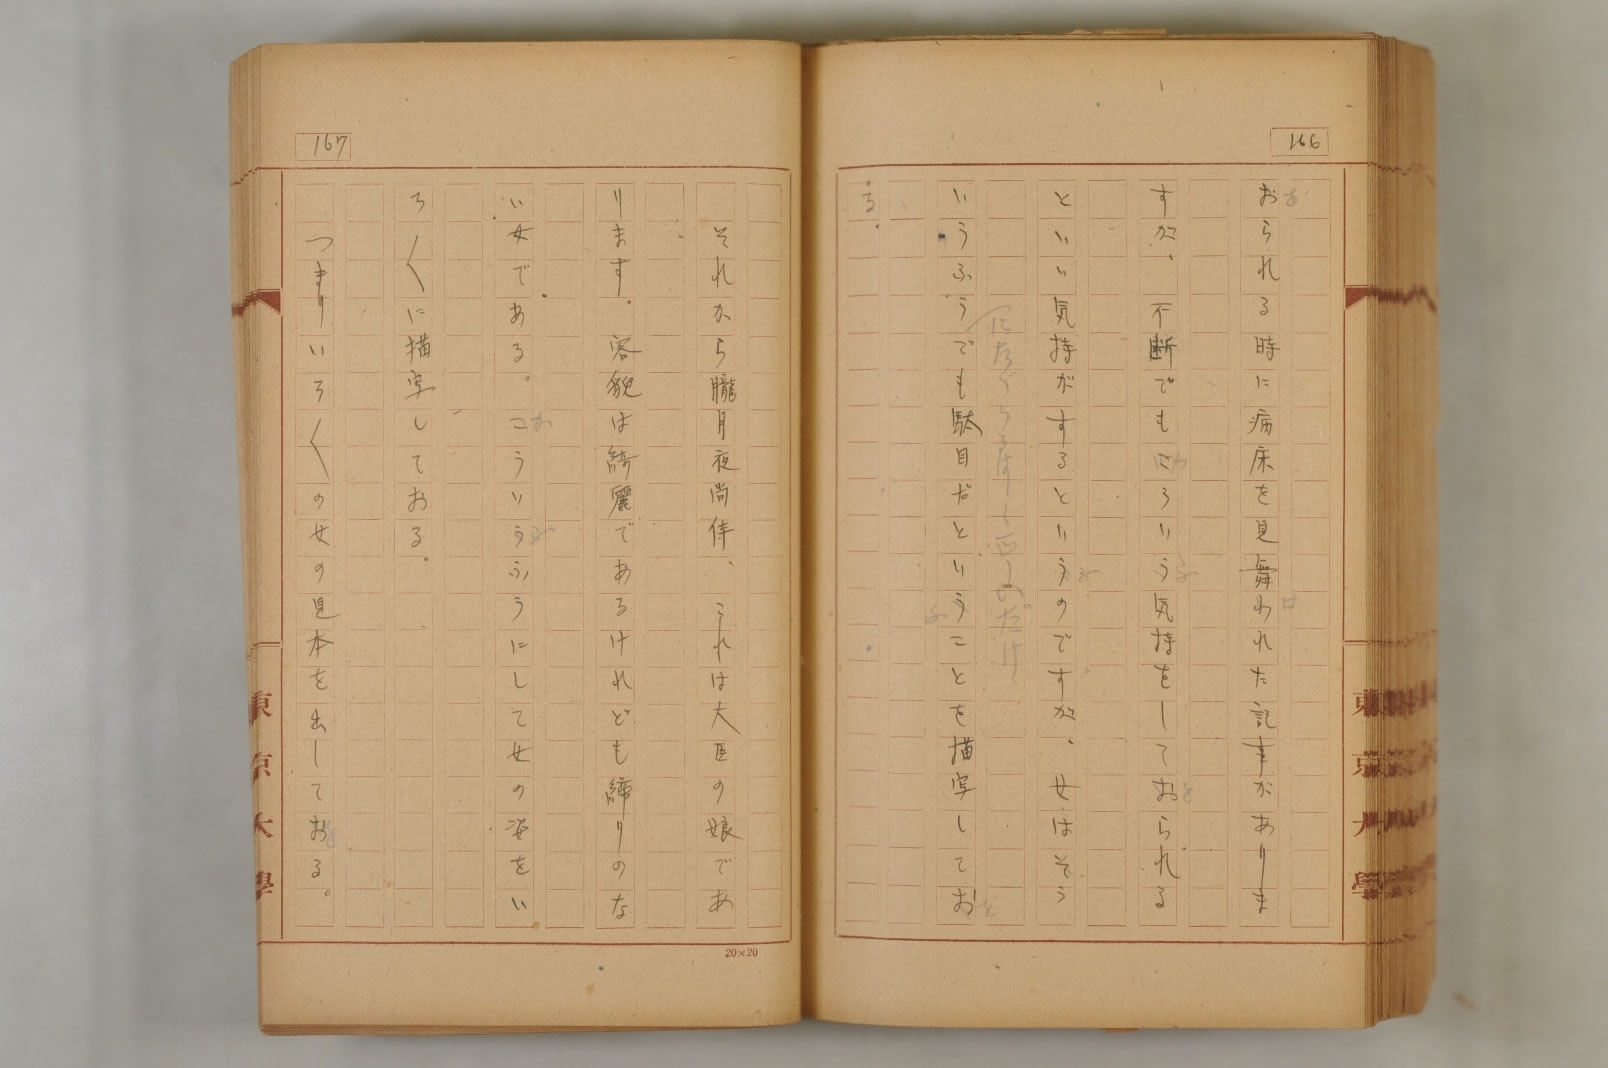 166
おられる時に病床を見舞われた記事がありま
すが、不断でもこういう気持をしておられる
といい気持がするというのですが、女はそう
いうふうでも駄目だということを描写してお
る。
東京大學
167
それから朧月夜尚侍、これは大臣の娘であ
ります。容貌は綺麗であるけれども締りのな
い女である。こういうふうにして女の姿をい
ろ〱に描写しておる。
つまりいろ〱の女の見本を出しておる。
東京大學
20×20